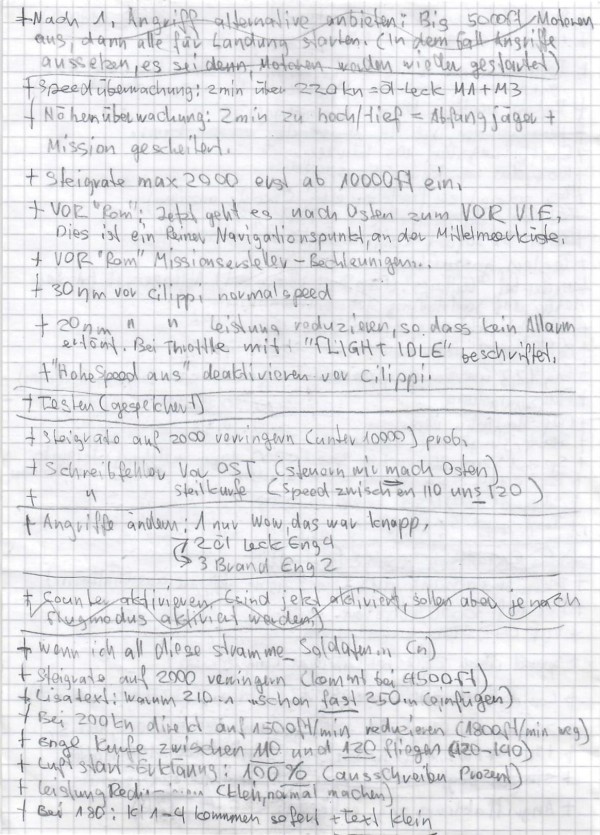 + Nach 1. Angriff alternative anbieten: Bis 5000ft Motoren
aus, dann alle für Landung starten. (In dem Fall Angriffe
aussetzen, es sei denn, Motoren worden wieder gestartet)
+ Speedüberwachung: 2min über 220kn = Öl-Leck M1+M3
+ Höhenüberwachung: 2min zu hoch/tief = Abfangjäger +
Mission gescheitert.
+ Steigrate max 2000 erst ab 10000ft ein.
+ VOR "Rom": Jetzt geht es nach Osten zum VOR VIE,
Dies ist ein Navigationspunkt, an der Mittelmeerküste.
+ VOR "Rom" Missionsersteller - Bechleunigen..
+ 30nm vor Cilippi normalspeed
+ 20nm " " Leistung reduzieren, so dass kein Allarm
ertönt. Bei Throttle mit "FLIGHT IDLE" beschriftet.
+ "Hohe Speed aus" deaktivieren vor Cilippi.
+ Testen (gespeichert)
+ Steigrate auf 2000 verringern (unter 10000) prob.
+ Schreibfehler Vor OST (steuern wir mach Osten)
+ " Steilkurfe (Speed zwischen 110 uns 120)
+ Angriffe ändern: 1 nur wow, das war knapp,
2 Öl Leck Eng 4
3 Brand Eng 2
+ Counter aktivieren (sind jetzt aktiviert, sollen aber je nach
Flugmodus aktiviert werden)
+ wenn ich all diese stramme_ Soldaten... (n)
+ Steigrate auf 2000 verringern (kommt bei 4500ft)
+ Lisatext: warum 210.. schon fast 250 (einfügen)
+ Bei 200kn direkt auf 1500ft/min reduzieren (1800ft/min weg)
+ enge Kurfe zwischen 110 und 120 fliegen (120-140)
+ Luftstart-Erklärung: 100% (ausschreiben Prozent)
+ Leistung (klein, normal machen)
+ Bei 180: Kl 1-4 kommen sofort + Text klein